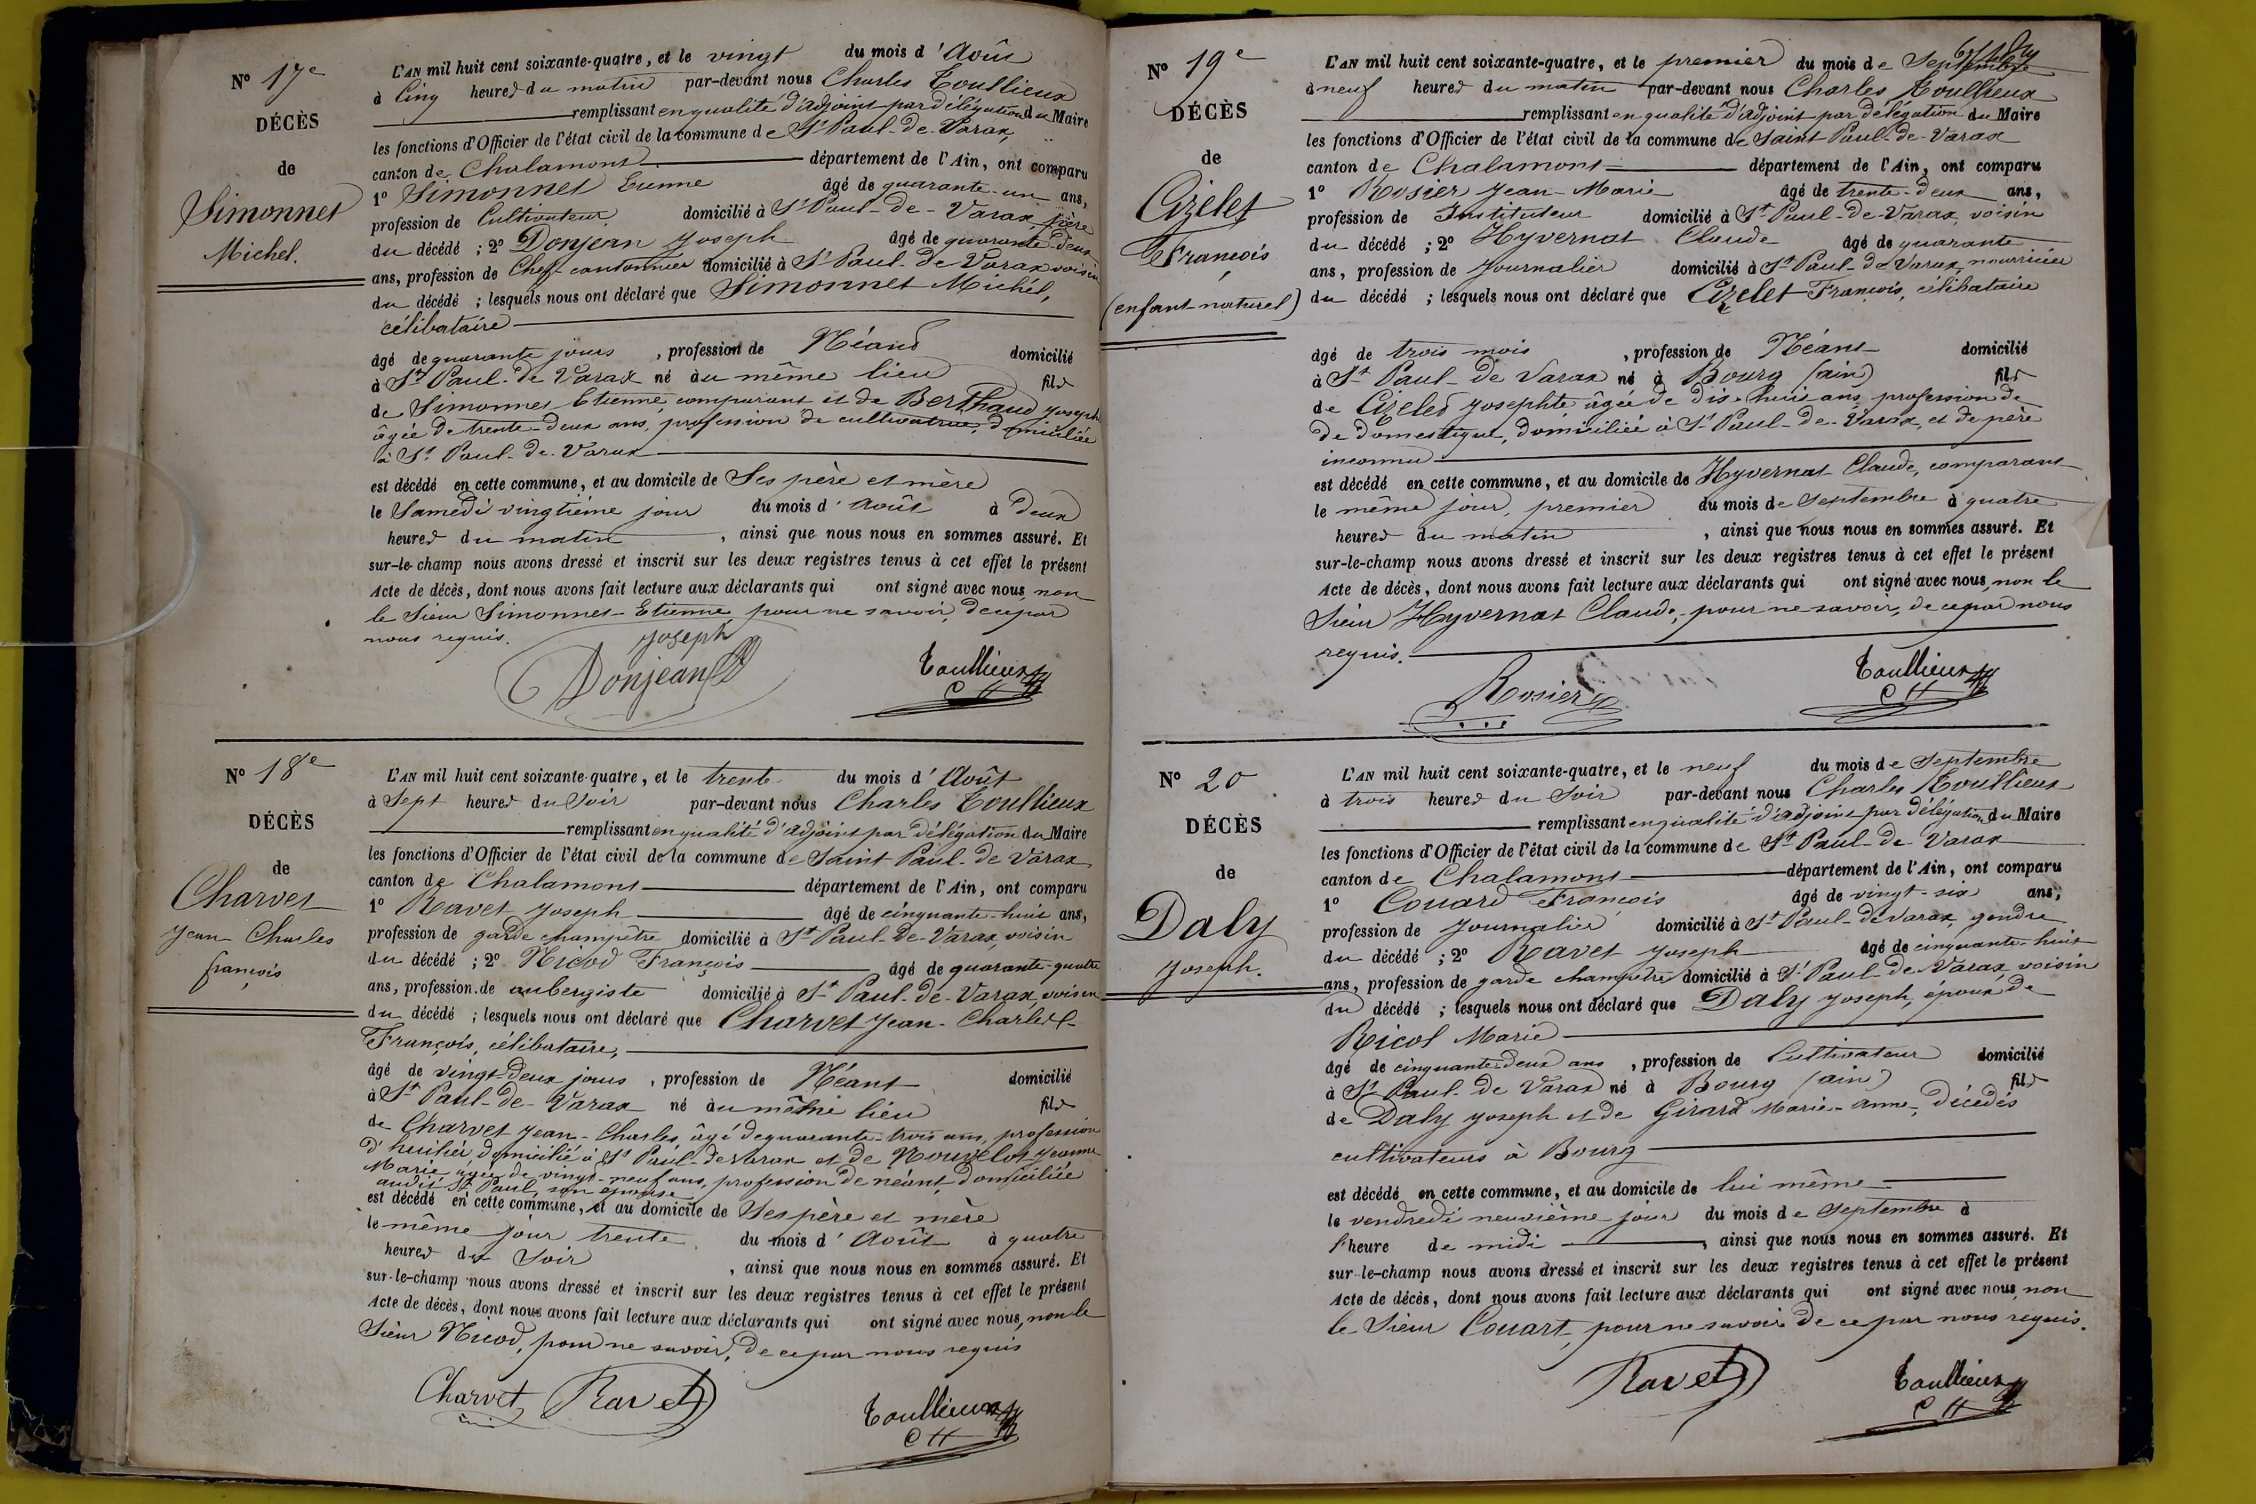 N° 17e
DÉCÈS
de
Simonnet
Michel.
L'AN mil huit cent soixante-quatre, et le vingt du mois d'Août
à Cinq heures du matin par-devant nous Charles Toullieux
remplissant en qualité d'adjoint par délégation du Maire
les fonctions d'Officier de l'état civil de la commune de St Paul-de-Varax,
canton de Chalamont département de l'Ain, ont comparu
1° Simonnet Etienne âgé de quarante-un ans,
profession de Cultivateur domicilié à St Paul-de-Varax, père
du décédé ; 2° Donjean Joseph âgé de quarante-deux
ans, profession de Chef-cantonnier domicilié à St Paul-de Varax voisin
du décédé ; lesquels nous ont déclaré que Simonnet Michel,
célibataire
âgé de quarante jours , profession de Néant domicilié
à St Paul-de Varax né au même lieu fils
de Simonnet Etienne, comparant et de Berthaud Josephte
âgée de trente-deux ans, profession de cultivatrice, domiciliée
à St Paul-de-Varax
est décédé en cette commune, et au domicile de Ses père et mère
le Samedi vingtième jour du mois d'Août à Deux
heures du matin , ainsi que nous nous en sommes assuré. Et
sur-le-champ nous avons dressé et inscrit sur les deux registres tenus à cet effet le présent
Acte de décès, dont nous avons fait lecture aux déclarants qui ont signé avec nous, non
le Sieur Simonnet-Etienne, pour ne savoir, de ce par
nous requis.
Joseph
Donjean
Toullieux
CH
N° 18e
DÉCÈS
de
Charvet
Jean Charles
françois
L'AN mil huit cent soixante-quatre, et le trente du mois d'Août
à Sept heures du Soir par-devant nous Charles Toullieux
remplissant en qualité d'adjoint par délégation du Maire
les fonctions d'Officier de l'état civil de la commune de Saint Paul-de Varax
canton de Chalamont département de l'Ain, ont comparu
1° Ravet Joseph âgé de cinquante-huit ans,
profession de garde champêtre domicilié à St Paul-de-Varax voisin
du décédé ; 2° Nicod François âgé de quarante-quatre
ans, profession de aubergiste domicilié à St Paul-de-Varax, voisin
du décédé ; lesquels nous ont déclaré que Charvet Jean-Charles-
François, célibataire,
âgé de vingt-deux jours , profession de Néant domicilié
à St Paul-de-Varax né au même lieu fils
de Charvet Jean-Charles, âgé de quarante-trois ans, profession
d'huilier, domicilié à St Paul-de Varax et de Nouvelot Jeanne
Marie âgée de vingt-neuf ans, profession de néant, domiciliée
audit St Paul, son épouse
est décédé en cette commune, et au domicile de Ses père et mère
le même jour trente du mois d'Août à quatre
heures du Soir , ainsi que nous nous en sommes assuré. Et
sur-le-champ nous avons dressé et inscrit sur les deux registres tenus à cet effet le présent
Acte de décès, dont nous avons fait lecture aux déclarants qui ont signé avec nous, non le
Sieur Nicod, pour ne savoir, de ce par nous requis
Charvet Ravet
Toullieux
CH
N° 19e
DÉCÈS
de
Cizelet
François
(enfant naturel)
L'AN mil huit cent soixante-quatre, et le premier du mois de Septembre
à neuf heures du matin par-devant nous Charles Toullieux
remplissant en qualité d'adjoint par délégation du Maire
les fonctions d'Officier de l'état civil de la commune de Saint Paul-de-Varax
canton de Chalamont département de l'Ain, ont comparu
1° Rosier Jean-Marie âgé de trente-deux ans,
profession de Instituteur domicilié à St Paul-de-Varax, voisin
du décédé ; 2° Hyvernat Claude âgé de quarante
ans, profession de Journalier domicilié à St Paul-de Varax, nourricier
du décédé ; lesquels nous ont déclaré que Cizelet François, célibataire
âgé de trois mois , profession de Néant domicilié
à St Paul-de Varax né à Bourg (ain) fils
de Cizelet Josephte âgée de dix-huit ans, profession de
de Domestique, domiciliée à St Paul-de-Varax, et de père
inconnu
est décédé en cette commune, et au domicile de Hyvernat Claude, comparant
le même jour, premier du mois de Septembre à quatre
heures du matin , ainsi que nous nous en sommes assuré. Et
sur-le-champ nous avons dressé et inscrit sur les deux registres tenus à cet effet le présent
Acte de décès, dont nous avons fait lecture aux déclarants qui ont signé avec nous, non le
Sieur Hyvernat Claude, pour ne savoir, de ce par nous
requis.
Rosier
Toullieux
CH
N° 20
DÉCÈS
de
Daly
Joseph.
L'AN mil huit cent soixante-quatre, et le neuf du mois de Septembre
à trois heures du Soir par-devant nous Charles Toullieux
remplissant en qualité d'adjoint par délégation du Maire
les fonctions d'Officier de l'état civil de la commune de St Paul-de Varax
canton de Chalamont département de l'Ain, ont comparu
1° Couard François âgé de vingt-six ans,
profession de Journalier domicilié à St Paul-de Varax, gendre
du décédé ; 2° Ravet Joseph âgé de cinquante-huit
ans, profession de garde champêtre domicilié à St Paul-de-Varax voisin
du décédé ; lesquels nous ont déclaré que Daly Joseph, époux de
Ricol Marie
âgé de cinquante-deux ans , profession de Cultivateur domicilié
à St Paul-de Varax né à Bourg (ain) fils
de Daly Joseph et de Girard Marie-Anne, décédés
cultivateurs à Bourg
est décédé en cette commune, et au domicile de lui même
le vendredi neuvième jour du mois de Septembre à
l'heure de midi , ainsi que nous nous en sommes assuré. Et
sur-le-champ nous avons dressé et inscrit sur les deux registres tenus à cet effet le présent
Acte de décès, dont nous avons fait lecture aux déclarants qui ont signé avec nous, non
le Sieur Couart, pour ne savoir de ce par nous requis.
Ravet
Toullieux
CH